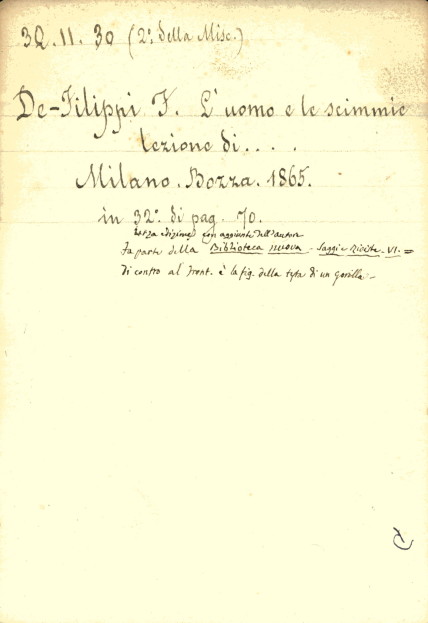 3Q. 11. 30 (2°. della Misc.)
De-Filippi F. L'uomo e le scimmie
lezione di . . . .
Milano. Bozza. 1865.
in 32°. di pag. 70.
terza edizione con aggiunte dell'autore
Fa parte della Biblioteca nuova - Saggi e Riviste. VI. =
di contro al front. è la fig. della testa di un gorilla -